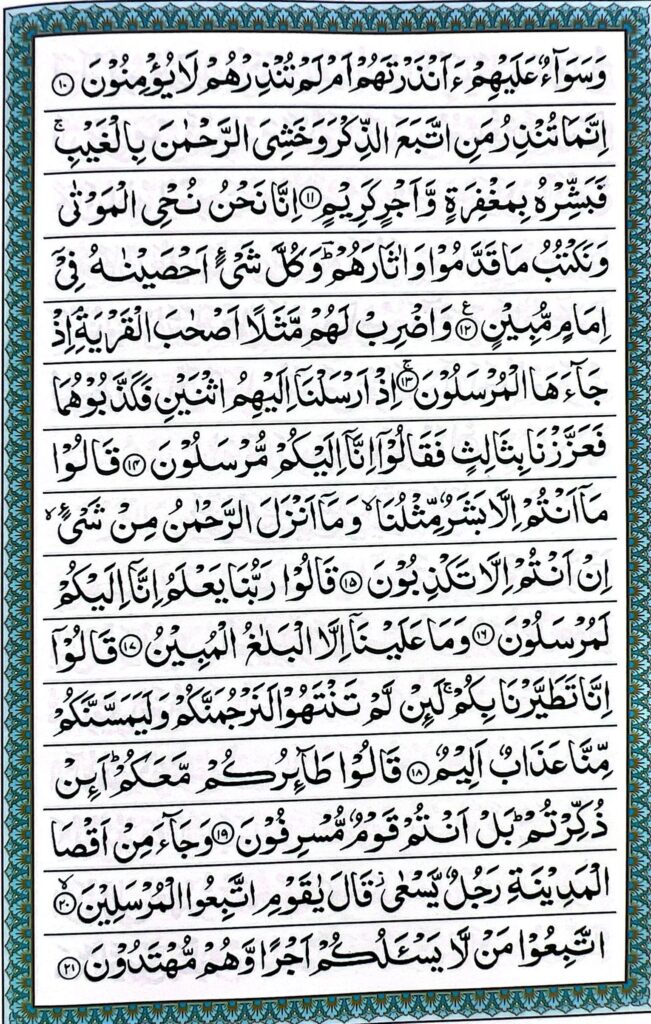 وَسَوَآءٌ عَلَيْهِمْ ءَاَنْذَرْتَهُمْ اَمْ لَمْ تُنْذِرْهُمْ لَا يُؤْمِنُوْنَ ١٠
اِنَّمَا تُنْذِرُ مَنِ اتَّبَعَ الذِّكْرَ وَخَشِيَ الرَّحْمٰنَ بِالْغَيْبِ ۚ
فَبَشِّرْهُ بِمَغْفِرَةٍ وَّاَجْرٍ كَرِيْمٍ ١١ اِنَّا نَحْنُ نُحْيِ الْمَوْتٰى
وَنَكْتُبُ مَا قَدَّمُوْا وَاٰثَارَهُمْ ؕ وَكُلَّ شَيْءٍ اَحْصَيْنٰهُ فِيْۤ
اِمَامٍ مُّبِيْنٍ ١٢ ع وَاضْرِبْ لَهُمْ مَّثَلًا اَصْحٰبَ الْقَرْيَةِ ۘ اِذْ
جَآءَهَا الْمُرْسَلُوْنَ ١٣ ۚ اِذْ اَرْسَلْنَاۤ اِلَيْهِمُ اثْنَيْنِ فَكَذَّبُوْهُمَا
فَعَزَّزْنَا بِثَالِثٍ فَقَالُوْۤا اِنَّاۤ اِلَيْكُمْ مُّرْسَلُوْنَ ١٤ قَالُوْا
مَاۤ اَنْتُمْ اِلَّا بَشَرٌ مِّثْلُنَا ۙ وَمَاۤ اَنْزَلَ الرَّحْمٰنُ مِنْ شَيْءٍ ۙ
اِنْ اَنْتُمْ اِلَّا تَكْذِبُوْنَ ١٥ قَالُوْا رَبُّنَا يَعْلَمُ اِنَّاۤ اِلَيْكُمْ
لَمُرْسَلُوْنَ ١٦ وَمَا عَلَيْنَاۤ اِلَّا الْبَلٰغُ الْمُبِيْنُ ١٧ قَالُوْۤا
اِنَّا تَطَيَّرْنَا بِكُمْ ۚ لَئِنْ لَّمْ تَنْتَهُوْا لَنَرْجُمَنَّكُمْ وَلَيَمَسَّنَّكُمْ
مِّنَّا عَذَابٌ اَلِيْمٌ ١٨ قَالُوْا طَآئِرُكُمْ مَّعَكُمْ ؕ اَئِنْ
ذُكِّرْتُمْ ؕ بَلْ اَنْتُمْ قَوْمٌ مُّسْرِفُوْنَ ١٩ وَجَآءَ مِنْ اَقْصَا
الْمَدِيْنَةِ رَجُلٌ يَّسْعٰى ز قَالَ يٰقَوْمِ اتَّبِعُوا الْمُرْسَلِيْنَ ٢٠ ۙ
اتَّبِعُوْا مَنْ لَّا يَسْـَٔلُكُمْ اَجْرًا وَّهُمْ مُّهْتَدُوْنَ ٢١